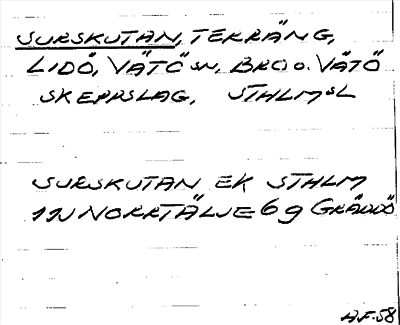 SURSKUTAN, TERRÄNG,
LIDÖ, VÄTÖ SN, BRO O. VÄTÖ
SKEPPSLAG, STHLMS L
SURSKUTAN EK STHLM
11J NORRTÄLJE 6 g GRÄDDÖ
A.F. 58